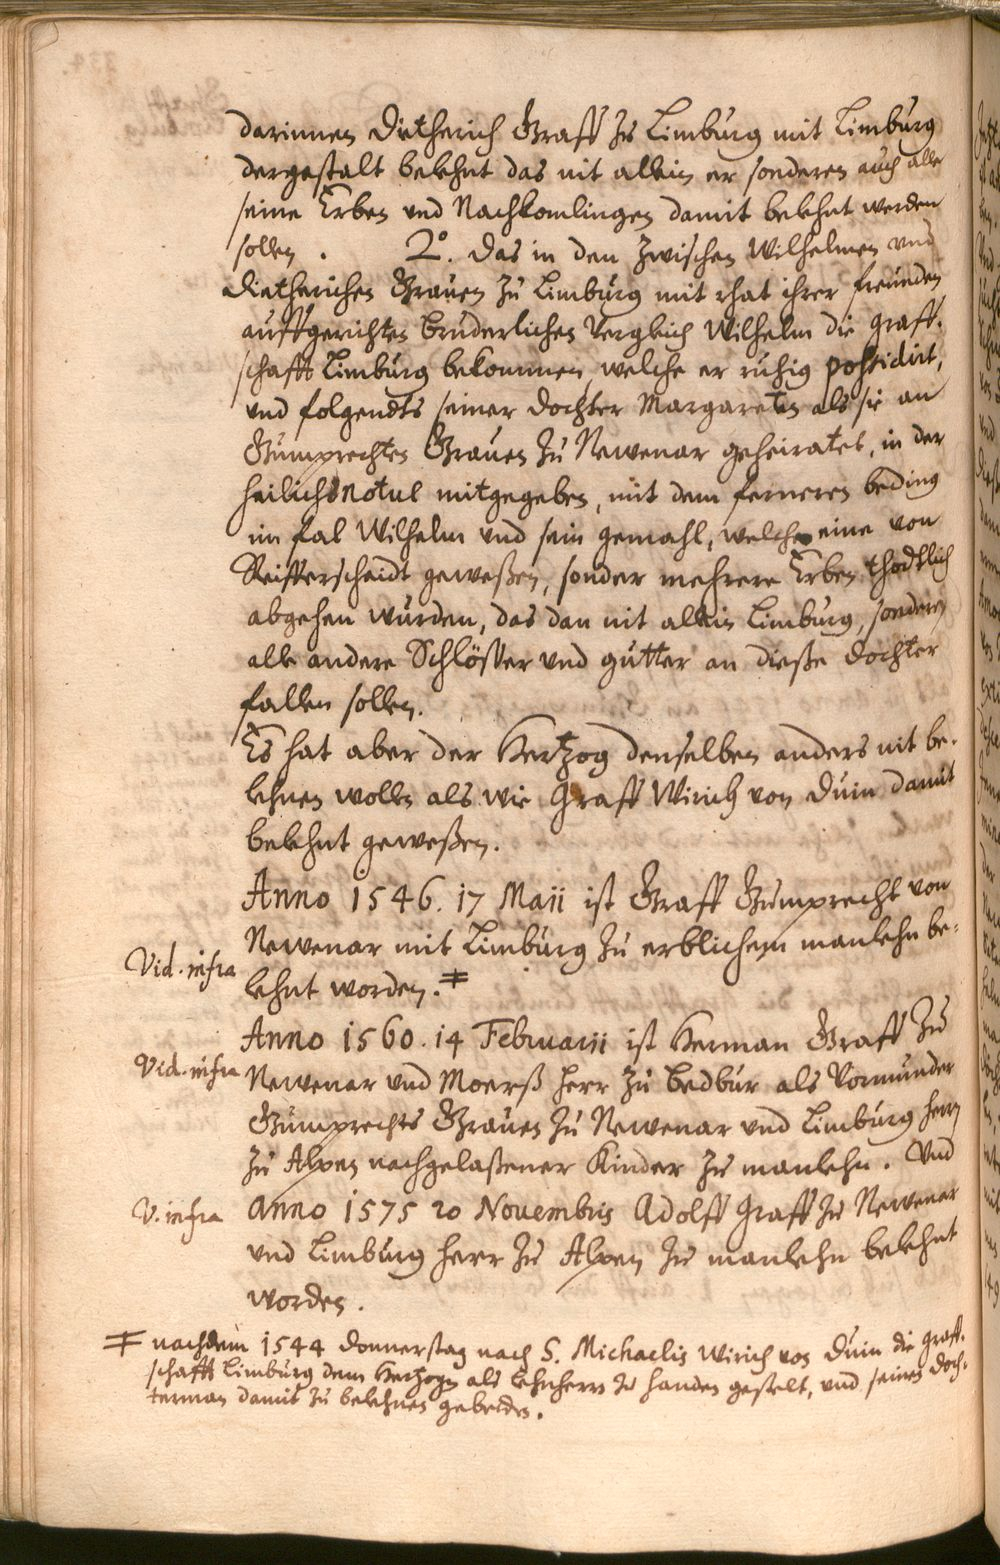 darinnen Dietherich Graff zu Limburg mit Limburg
dergestalt belehnt das nit allein er sonderen auch alle
seine Erben und Nachkomlingen damit belehnt werden
sollen. 2°. Das in den zwischen Wilhelmen und
Dietherichen Grauen zu Limburg mit rhat ihrer freunden
auffgerichten bruderlichen Vergleich Wilhelm die Graff-
schafft Limburg bekommen, welche er ruhig possidirt,
und folgendts seiner dochter Margareten als sie an
Gumprechten Grauen zu Newenar geheiratet, in der
heilichsnotul mitgegeben, mit dem ferneren beding
im fal Wilhelm und sein gemahl, welche eine von
Reifferscheidt geweßen, sonder mehrere Erben thodtlich
abgehen wurden, das dan nit allein Limburg, sonderen
alle andere Schlösser und gutter an dieße dochter
fallen sollen.
Es hat aber der Hertzog denselben anders nit be-
lehnen wollen als wie Graff Wirich von Duin damit
belehnt geweßen.
Anno 1546. 17 Maii ist Graff Gumprecht von
Newenar mit Limburg zu erblichem manlehn be-
Vid. infra lehnt worden. ǂ
Anno 1560. 14 Februarii ist Herman Graff zu
Vid. infra Newenar und Moerß Herr zu Bedbur als Vormunder
Gumprechts Grauen zu Newenar und Limburg herrn
zu Alpen nachgelaßener Kinder zu manlehn. Und
V. infra Anno 1575 20 Nouembris Adolff Graff zu Newenar
und Limburg Herr zu Alpen zu manlehn belehnt
worden.
ǂ nachdem 1544 donnerstag nach S. Michaelis Wirich von Duin die Graff-
schafft Limburg dem Hertzogen als lehnherrn zu handen gestelt, und seinen doch-
terman damit zu belehnen gebetten.